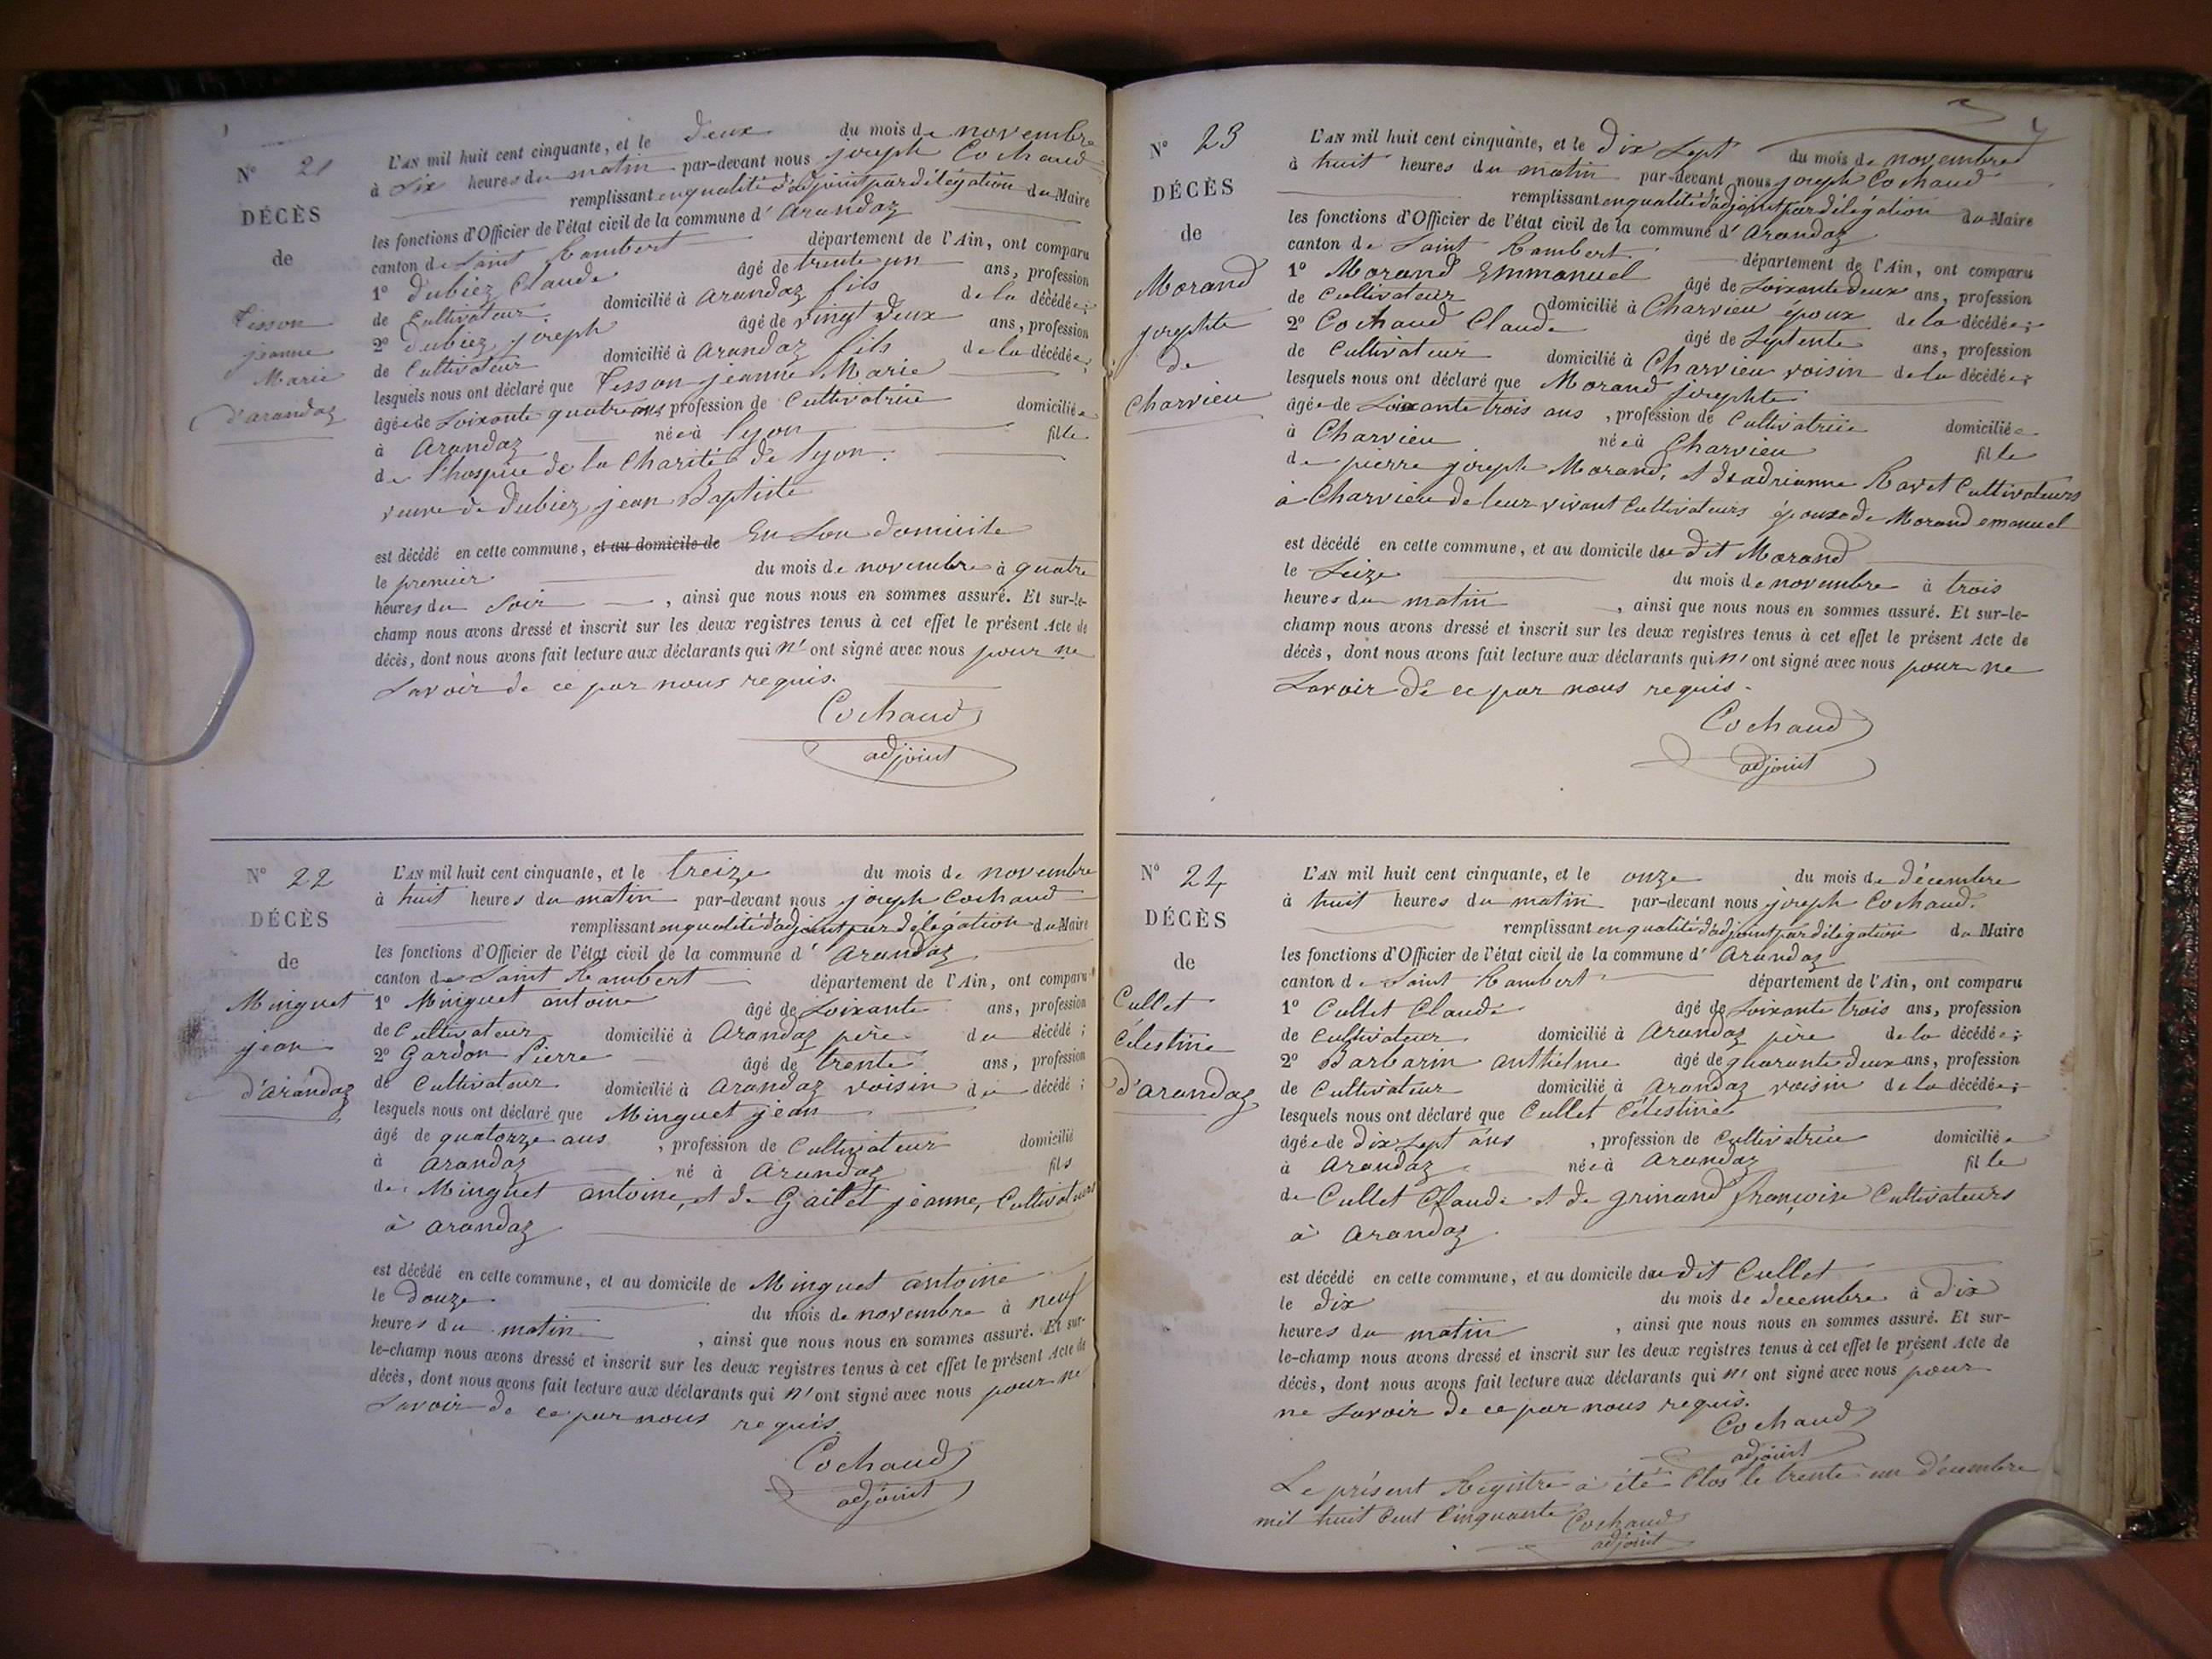 N° 21
DÉCÈS
de
Tesson
jeanne
Marie
d'arandaz
L'AN mil huit cent cinquante, et le deux du mois de novembre
à Six heures du matin par-devant nous joseph Cochaud
remplissant en qualité d'adjoint par délégation du Maire
les fonctions d'Officier de l'état civil de la commune d'Arandaz
canton de Saint Rambert département de l'Ain, ont comparu
1° Dubiez Claude âgé de trente un ans, profession
de Cultivateur domicilié à Arandaz fils de la décédée;
2° Dubiez joseph âgé de vingt deux ans, profession
de Cultivateur domicilié à Arandaz fils de la décédée;
lesquels nous ont déclaré que Tesson jeanne Marie
âgée de Soixante quatre ans, profession de Cultivatrice domiciliée
à Arandaz née à Lyon fille
de l'hospice de la Charité de Lyon.
veuve de Dubiez jean Baptiste
est décédé en cette commune, et au domicile de En Son domicile
le premier du mois de novembre à quatre
heures du Soir, ainsi que nous nous en sommes assuré. Et sur-le-
champ nous avons dressé et inscrit sur les deux registres tenus à cet effet le présent Acte de
décès, dont nous avons fait lecture aux déclarants qui n'ont signé avec nous pour ne
Savoir de ce par nous requis.
Cochaud
adjoint
N° 22
DÉCÈS
de
Minguet
jean
d'arandaz
L'AN mil huit cent cinquante, et le treize du mois de novembre
à huit heures du matin par-devant nous joseph Cochaud
remplissant en qualité d'adjoint par délégation du Maire
les fonctions d'Officier de l'état civil de la commune d'Arandaz
canton de Saint Rambert département de l'Ain, ont comparu
1° Minguet antoine âgé de Soixante ans, profession
de Cultivateur domicilié à Arandaz père du décédé;
2° Gardon Pierre âgé de trente ans, profession
de Cultivateur domicilié à Arandaz voisin du décédé;
lesquels nous ont déclaré que Minguet jean
âgé de quatorze ans, profession de Cultivateur domicilié
à Arandaz né à Arandaz fils
de Minguet antoine, et de Gaillet jeanne, Cultivateurs
à Arandaz
est décédé en cette commune, et au domicile de Minguet antoine
le Douze du mois de novembre à neuf
heures du matin, ainsi que nous nous en sommes assuré. Et sur-
le-champ nous avons dressé et inscrit sur les deux registres tenus à cet effet le présent Acte de
décès, dont nous avons fait lecture aux déclarants qui n'ont signé avec nous pour ne
Savoir de ce par nous requis.
Cochaud
adjoint
N° 23
DÉCÈS
de
Morand
josephte
de
Charvieu
L'AN mil huit cent cinquante, et le Dix Sept du mois de novembre
à huit heures du matin par-devant nous joseph Cochaud
remplissant en qualité d'adjoint par délégation du Maire
les fonctions d'Officier de l'état civil de la commune d'Arandaz
canton de Saint Rambert département de l'Ain, ont comparu
1° Morand Emmanuel âgé de Soixante deux ans, profession
de Cultivateur domicilié à Charvieu époux de la décédée;
2° Cochaud Claude âgé de Septente ans, profession
de Cultivateur domicilié à Charvieu voisin de la décédée;
lesquels nous ont déclaré que Morand josephte
âgée de Soixante trois ans, profession de Cultivatrice domiciliée
à Charvieu née à Charvieu fille
de pierre joseph Morand, et de adrianne Ravet Cultivateurs
à Charvieu de leur vivant Cultivateurs épouse de Morand emanuel
est décédé en cette commune, et au domicile du dit Morand
le Seize du mois de novembre à trois
heures du matin, ainsi que nous nous en sommes assuré. Et sur-le-
champ nous avons dressé et inscrit sur les deux registres tenus à cet effet le présent Acte de
décès, dont nous avons fait lecture aux déclarants qui n'ont signé avec nous pour ne
Savoir de ce par nous requis.
Cochaud
adjoint
N° 24
DÉCÈS
de
Cullet
Célestine
d'arandaz
L'AN mil huit cent cinquante, et le onze du mois de décembre
à huit heures du matin par-devant nous joseph Cochaud.
remplissant en qualité d'adjoint par délégation du Maire
les fonctions d'Officier de l'état civil de la commune d'Arandaz
canton de Saint Rambert département de l'Ain, ont comparu
1° Cullet Claude âgé de Soixante trois ans, profession
de Cultivateur domicilié à Arandaz père de la décédée;
2° Barbarin anthelme âgé de quarante deux ans, profession
de Cultivateur domicilié à Arandaz voisin de la décédée;
lesquels nous ont déclaré que Cullet Célestine
âgée de Dix Sept ans, profession de Cultivatrice domiciliée
à Arandaz née à Arandaz fille
de Cullet Claude et de grinand françoise Cultivateurs
à Arandaz
est décédé en cette commune, et au domicile du dit Cullet
le Dix du mois de decembre à dix
heures du matin, ainsi que nous nous en sommes assuré. Et sur-
le-champ nous avons dressé et inscrit sur les deux registres tenus à cet effet le présent Acte de
décès, dont nous avons fait lecture aux déclarants qui n'ont signé avec nous pour
ne Savoir de ce par nous requis.
Cochaud
adjoint
Le présent Registre a été Clos le trente un décembre
mil huit Cent Cinquante
Cochaud
adjoint